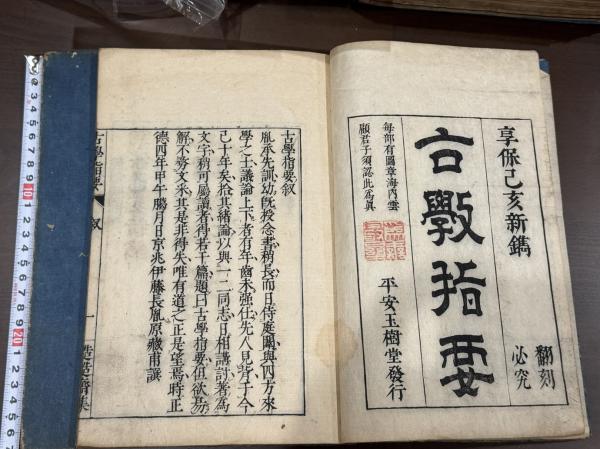 享保己亥新鐫
翻刻
必究
古學指要
每部有圖章海內雲
顧君子須認此為真
平安玉樹堂發行
古學指要敘
胤承先訓幼既授念書稍長而日侍庭闈與四方來
學之士議論上下者有年齒未强仕先人見背于今
己十年矣拾其緒論以與一二同志日相講討著為
文字稍可屬讀者得若干篇題曰古學指要但欲易
解不务文采其是非得失唯有道之正是望焉時正
德四年甲午臘月日京兆伊藤長胤原藏甫譔
古學指要
叙
一
10
20